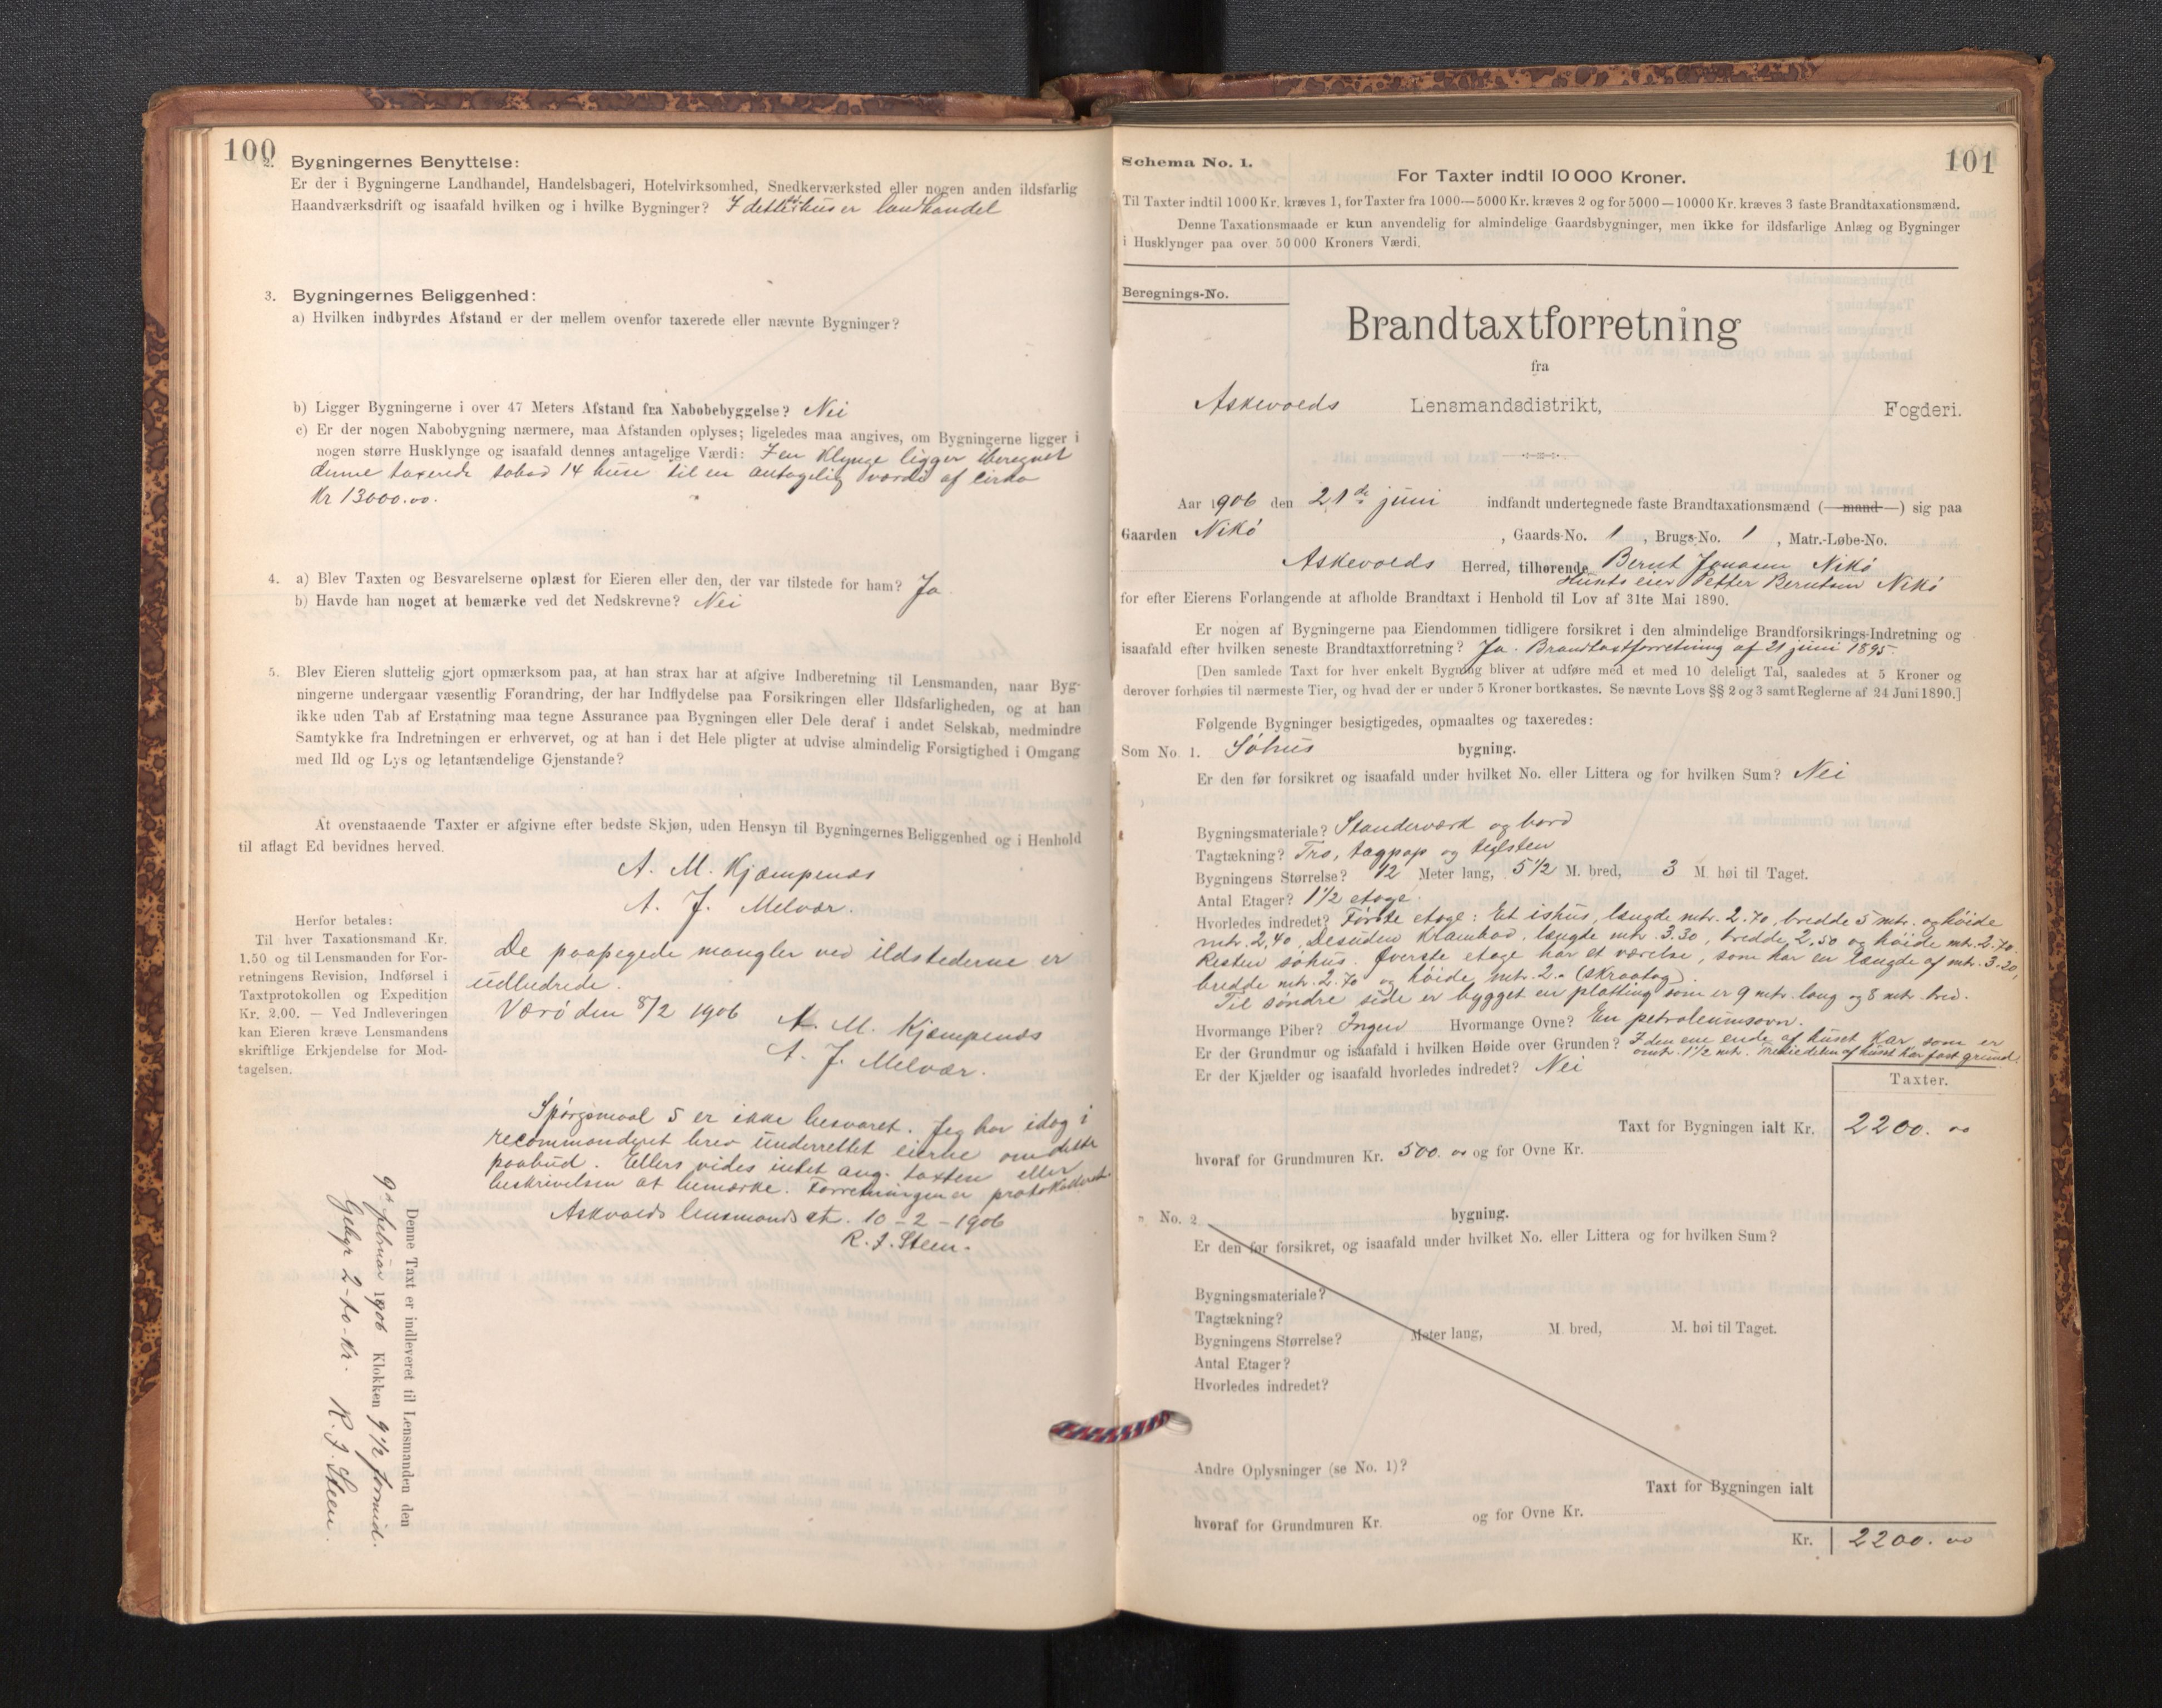 100
2. Bygningernes Benyttelse:
Er der i Bygningerne Landhandel, Handelsbageri, Hotelvirksomhed, Snedkerværksted eller nogen anden ildsfarlig
Haandværksdrift og isaafald hvilken og i hvilke Bygninger? I dette hus er landhandel
3. Bygningernes Beliggenhed:
a) Hvilken indbyrdes Afstand er der mellem ovenfor taxerede eller nævnte Bygninger?
b) Ligger Bygningerne i over 47 Meters Afstand fra Nabobebyggelse? Nei
c) Er der nogen Nabobygning nærmere, maa Afstanden oplyses; ligeledes maa angives, om Bygningerne ligger i
nogen større Husklynge og isaafald dennes antagelige Værdi: I en klynge ligger iberegnet
denne taxerede 14 huse til en antagelig værdi af cirka
Kr 13000.00.
4. a) Blev Taxten og Besvarelserne oplæst for Eieren eller den, der var tilstede for ham? Ja
b) Havde han noget at bemærke ved det Nedskrevne? Nei
5. Blev Eieren sluttelig gjort opmærksom paa, at han strax har at afgive Indberetning til Lensmanden, naar Byg-
ningerne undergaar væsentlig Forandring, der har Indflydelse paa Forsikringen eller Ildsfarligheden, og at han
ikke uden Tab af Erstatning maa tegne Assurance paa Bygningen eller Dele deraf i andet Selskab, medmindre
Samtykke fra Indretningen er erhvervet, og at han i det Hele pligter at udvise almindelig Forsigtighed i Omgang
med Ild og Lys og letantændelige Gjenstande?
At ovenstaaende Taxter er afgivne efter bedste Skjøn, uden Hensyn til Bygningernes Beliggenhed og i Henhold
til aflagt Ed bevidnes herved.
A. M. Kjæmpenæs
A. J. Melvær.
Herfor betales:
Til hver Taxationsmand Kr.
1.50 og til Lensmanden for For-
retningens Revision, Indførsel i
Taxtprotokollen og Expedition
Kr. 2.00. — Ved Indleveringen
kan Eieren kræve Lensmandens
skriftlige Erkjendelse for Mod-
tagelsen.
De paapegede mangler ved ildstederne er
udbedrede.
Værö den 8/2 1906 A. M. Kjæmpenæs
A. J. Melvær.
Spörgsmaal 5 er ikke besvaret. Jeg har idag i
recommanderet brev underrettet eierne om dette
paabud. Ellers vides intet ang. taxten eller
beskrivelsen at bemærke. Forretningen er protokolleret
Askvolds lensmandsct. 10-2-1906
R. J. Steen.
Denne Taxt er indleveret til Lensmanden den
9de februar 1906 Klokken 9 1/2 formid.
Gebyr 2-to-kr. R. J. Steen.
Schema No. 1.
101
For Taxter indtil 10 000 Kroner.
Til Taxter indtil 1000 Kr. kræves 1, for Taxter fra 1000—5000 Kr. kræves 2 og for 5000—10000 Kr. kræves 3 faste Brandtaxationsmænd.
Denne Taxationsmaade er kun anvendelig for almindelige Gaardsbygninger, men ikke for ildsfarlige Anlæg og Bygninger
i Husklynger paa over 50 000 Kroners Værdi.
Beregnings-No.
Brandtaxtforretning
fra
Askevolds Lensmandsdistrikt, Fogderi.
Aar 1906 den 21de juni indfandt undertegnede faste Brandtaxationsmænd (—mand—) sig paa
Gaarden Nikö , Gaards-No. 1 , Brugs-No. 1 , Matr.-Løbe-No.
Askevolds Herred, tilhørende Bernt Jonasen Nikö
Husets eier Petter Berntsen Nikö
for efter Eierens Forlangende at afholde Brandtaxt i Henhold til Lov af 31te Mai 1890.
Er nogen af Bygningerne paa Eiendommen tidligere forsikret i den almindelige Brandforsikrings-Indretning og
isaafald efter hvilken seneste Brandtaxtforretning? Ja. Brandtaxtforretning af 21 juni 1895.
[Den samlede Taxt for hver enkelt Bygning bliver at udføre med et med 10 deleligt Tal, saaledes at 5 Kroner og
derover forhøies til nærmeste Tier, og hvad der er under 5 Kroner bortkastes. Se nævnte Lovs §§ 2 og 3 samt Reglerne af 24 Juni 1890.]
Følgende Bygninger besigtigedes, opmaaltes og taxeredes:
Som No. 1. Söhus bygning.
Er den før forsikret og isaafald under hvilket No. eller Littera og for hvilken Sum? Nei
Bygningsmateriale? Standerværk og bord
Tagtækning? Tro, tagpap og teglsten
Bygningens Størrelse? 12 Meter lang, 5 1/2 M. bred, 3 M. høi til Taget.
Antal Etager? 1 1/2 etage.
Hvorledes indredet? Förste etage: Et ishus, længde mtr. 2.70, bredde 5 mtr. og höide
mtr. 2,40. Desuden krambod, længde mtr. 3.30, bredde 2.50 og höide mtr. 2.70.
Resten söhus. Överste etage har et værelse, som har en længde af mtr. 3.20,
bredde mtr. 2.70 og höide mtr. 2. (skraatag).
Til söndre side er bygget en platting som er 9 mtr. lang og 8 mtr. bred.
Hvormange Piber? Ingen Hvormange Ovne? En petroleumsovn.
Er der Grundmur og isaafald i hvilken Høide over Grunden? I den ene ende af huset kar som er
omtr. 1 1/2 mtr. Trediedelen af huset har fast grund.
Er der Kjælder og isaafald hvorledes indredet? Nei
Taxter.
Taxt for Bygningen ialt Kr. 2200. 00
hvoraf for Grundmuren Kr. 500. 00 og for Ovne Kr.
" No. 2 bygning.
Er den før forsikret, og isaafald under hvilket No. eller Littera og for hvilken Sum?
Bygningsmateriale?
Tagtækning?
Bygningens Størrelse? Meter lang, M. bred, M. høi til Taget.
Antal Etager?
Hvorledes indredet?
Andre Oplysninger (se No. 1)?
Taxt for Bygningen ialt
hvoraf for Grundmuren Kr. og for Ovne Kr.
Kr. 2200. 00